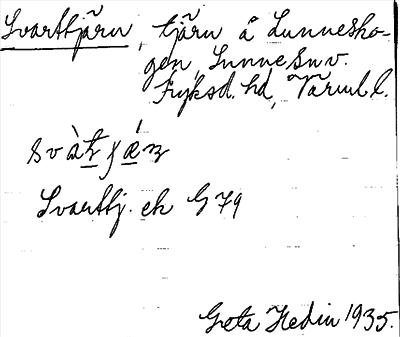 Svarttjärn, tjärn å Lunnesko-
gen, Sunne sn v.
Fryksd. hd, Värml. l.
Svarttj. ek G 79
Greta Hedin 1935.